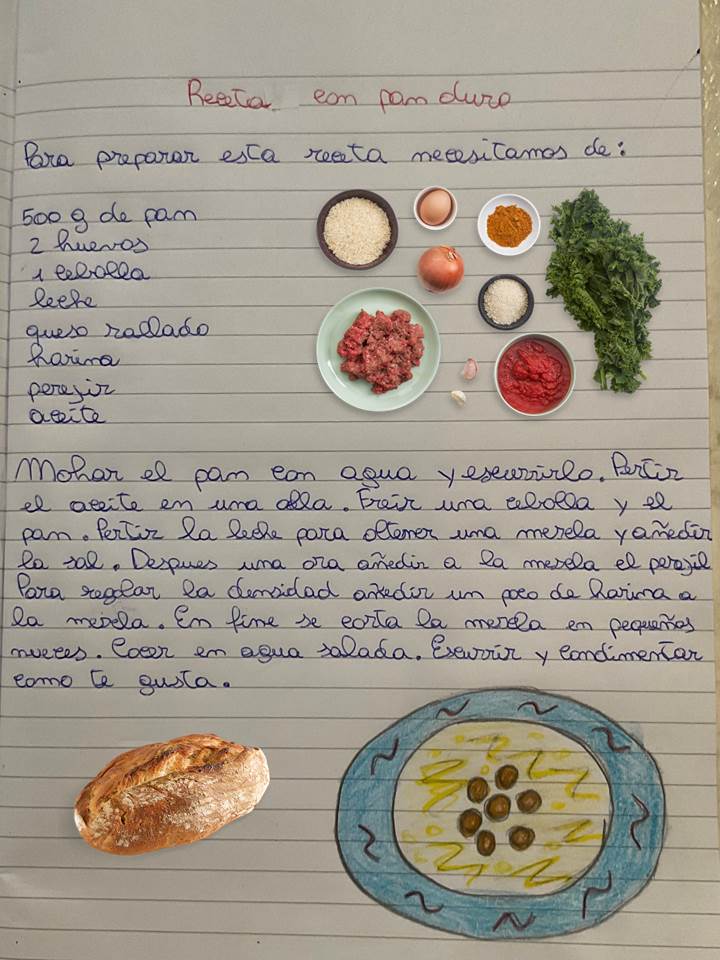 Receta con pan duro
Para preparar esta receta necesitamos de:
500 g de pan
2 huevos
1 cebolla
leche
queso rallado
harina
perejir
aceite
Mohar el pan con agua y escurrirlo. Pertir
el aceite en una olla. Freir una cebolla y el
pan. Pertir la leche para obtener una mescla y añedir
la sal. Despues una ora añedir a la mescla el perejil
Para reglar la densidad añedir un poco de harina a
la mescla. En fine se corta la mescla en pequeños
nueces. Cocer en agua salada. Escurrir y condimentar
como te gusta.